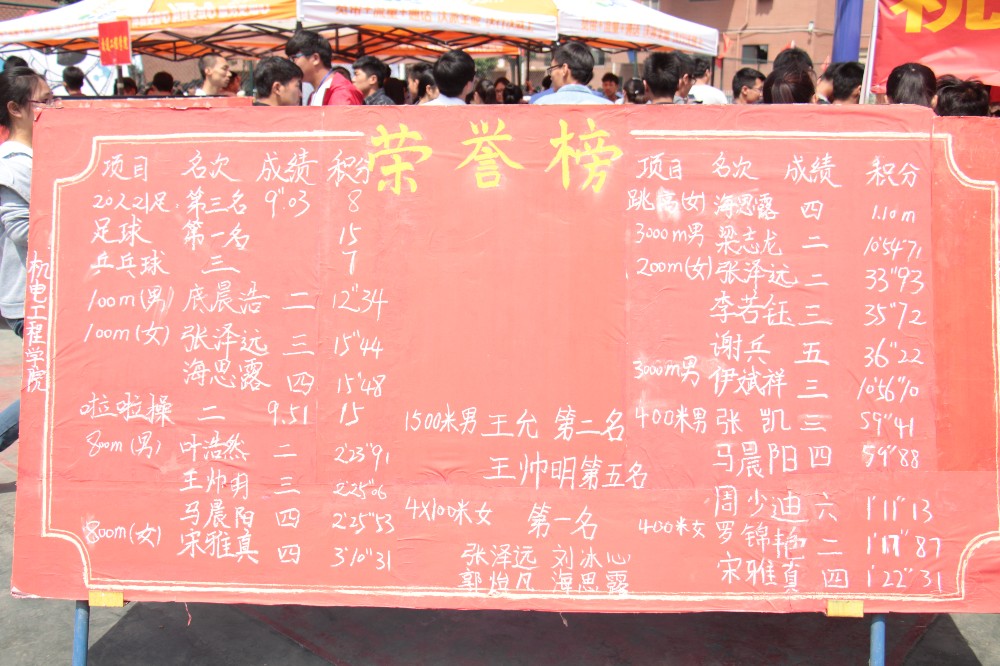 荣誉榜
机电工程学院
项目 名次 成绩 积分
20人21足 第三名 9"03 8
足球 第一名 15
乒乓球 三 7
100m(男) 底晨浩 二 12"34
100m(女) 张泽远 三 15"44
海思露 四 15"48
啦啦操 二 9.51 15
800m(男) 叶浩然 二 2'23"91
王帅明 三 2'25"06
马晨阳 四 2'25"53
800m(女) 宋雅真 四 3'10"31
1500米男 王允 第二名
王帅明 第五名
4X100米女 第一名
张泽远 刘冰心
郭怡凡 海思露
项目 名次 成绩 积分
跳高(女) 海思露 四 1.10m
3000m男 梁志龙 二 10'54"71
200m(女) 张泽远 二 33"93
李若钰 三 35"72
谢兵 五 36"22
3000m男 伊斌祥 三 10'56"10
400米男 张凯 三 59"41
马晨阳 四 59"88
周少迪 六 1'11"13
400米女 罗锦艳 二 1'17"87
宋雅真 四 1'22"31